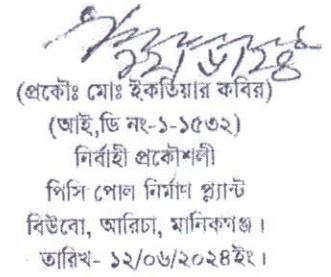 ১২/৬/২৪
(প্রকৌঃ মোঃ ইকতিয়ার কবির)
(আই,ডি নং-১-১৫৩২)
নির্বাহী প্রকৌশলী
পিসি পোল নির্মাণ প্ল্যান্ট
বিউবো, আরিচা, মানিকগঞ্জ।
তারিখ- ১২/০৬/২০২৪ইং।